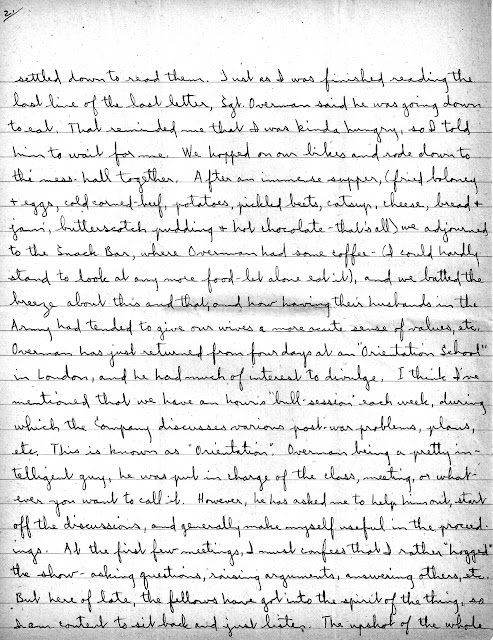 2.
settled down to read them. Just as I was finished reading the
last line of the last letter, Sgt. Overman said he was going down
to eat. That reminded me that I was kinda hungry, so I told
him to wait for me. We hopped on our bikes and rode down to
the mess-hall together. After an immense supper, (fried baloney
+ eggs, cold corned-beef, potatoes, pickled beets, catsup, cheese, bread +
jam, butterscotch pudding + hot chocolate - that's all) we adjourned
to the Snack Bar, where Overman had some coffee - (I could hardly
stand to look at any more food - let alone eat it), and we batted the
breeze about this and that, and how having their husbands in the
Army had tended to give our wives a more acute sense of values, etc.
Overman has just returned from four days at an "Orientation School"
in London, and he had much of interest to divulge. I think I've
mentioned that we have an hour's "bull-session" each week, during
which the Company discusses various post-war problems, plans,
etc. This is known as "Orientation". Overman being a pretty in-
telligent guy, he was put in charge of the class, meeting, or what-
ever you want to call it. However, he has asked me to help him out, start
off the discussions, and generally make myself useful in the proceed-
ings. At the first few meetings, I must confess that I rather "hogged"
the show - asking questions, raising arguments, answering others, etc.
But here of late, the fellows have got into the spirit of the thing, so
I am content to sit back and just listen. The upshot of the whole